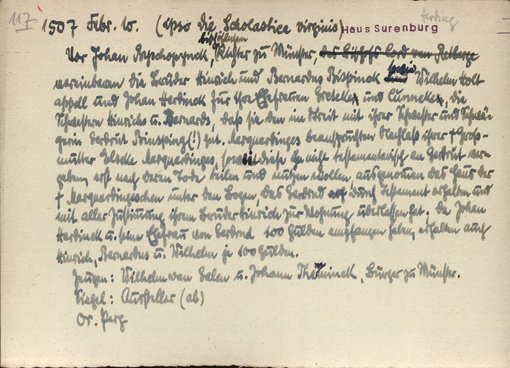 117 1507 Febr. 10. (ipso die Scholastice virginis) Haus Surenburg Herding
Vor Johan Bisschopynck, bischöflichem Richter zu Münster,
vereinbaren die Brüder Hinrich und Bernardus Bispinck sowie Wilhelm Holt
appell und Johan Herdinck für ihre Ehefrauen Greteken und Cunneken, die
Schwestern Hinrichs u. Bernards, daß sie den im Streit mit ihrer Schwester und Schwä-
gerin Gerdrut Bispinck (!) gnt. Merquerdinges beanspruchten Nachlaß ihrer † Groß-
mutter Elseke Merquerdinges, soweit diese ihn nicht testamentarisch an Gerdrut ver-
geben, erst nach deren Tode teilen und nutzen wollen ausgenommen das Haus der
† Merquerdingeschen unter den Bogen, das Gerdrud durch Testament erhalten und
mit aller Zustimmung ihrem Bruder Hinrich zur Wohnung überlassen hat. Da Johan
Herdinck u. seine Ehefrau von Gerdrud 100 Gulden empfangen haben, erhalten auch
Hinrich, Bernardus u. Wilhelm je 100 Gulden.
Zeugen: Wilhelm van Galen u. Johann, Bürger zu Münster.
Siegel: Aussteller (ab)
Or. Perg